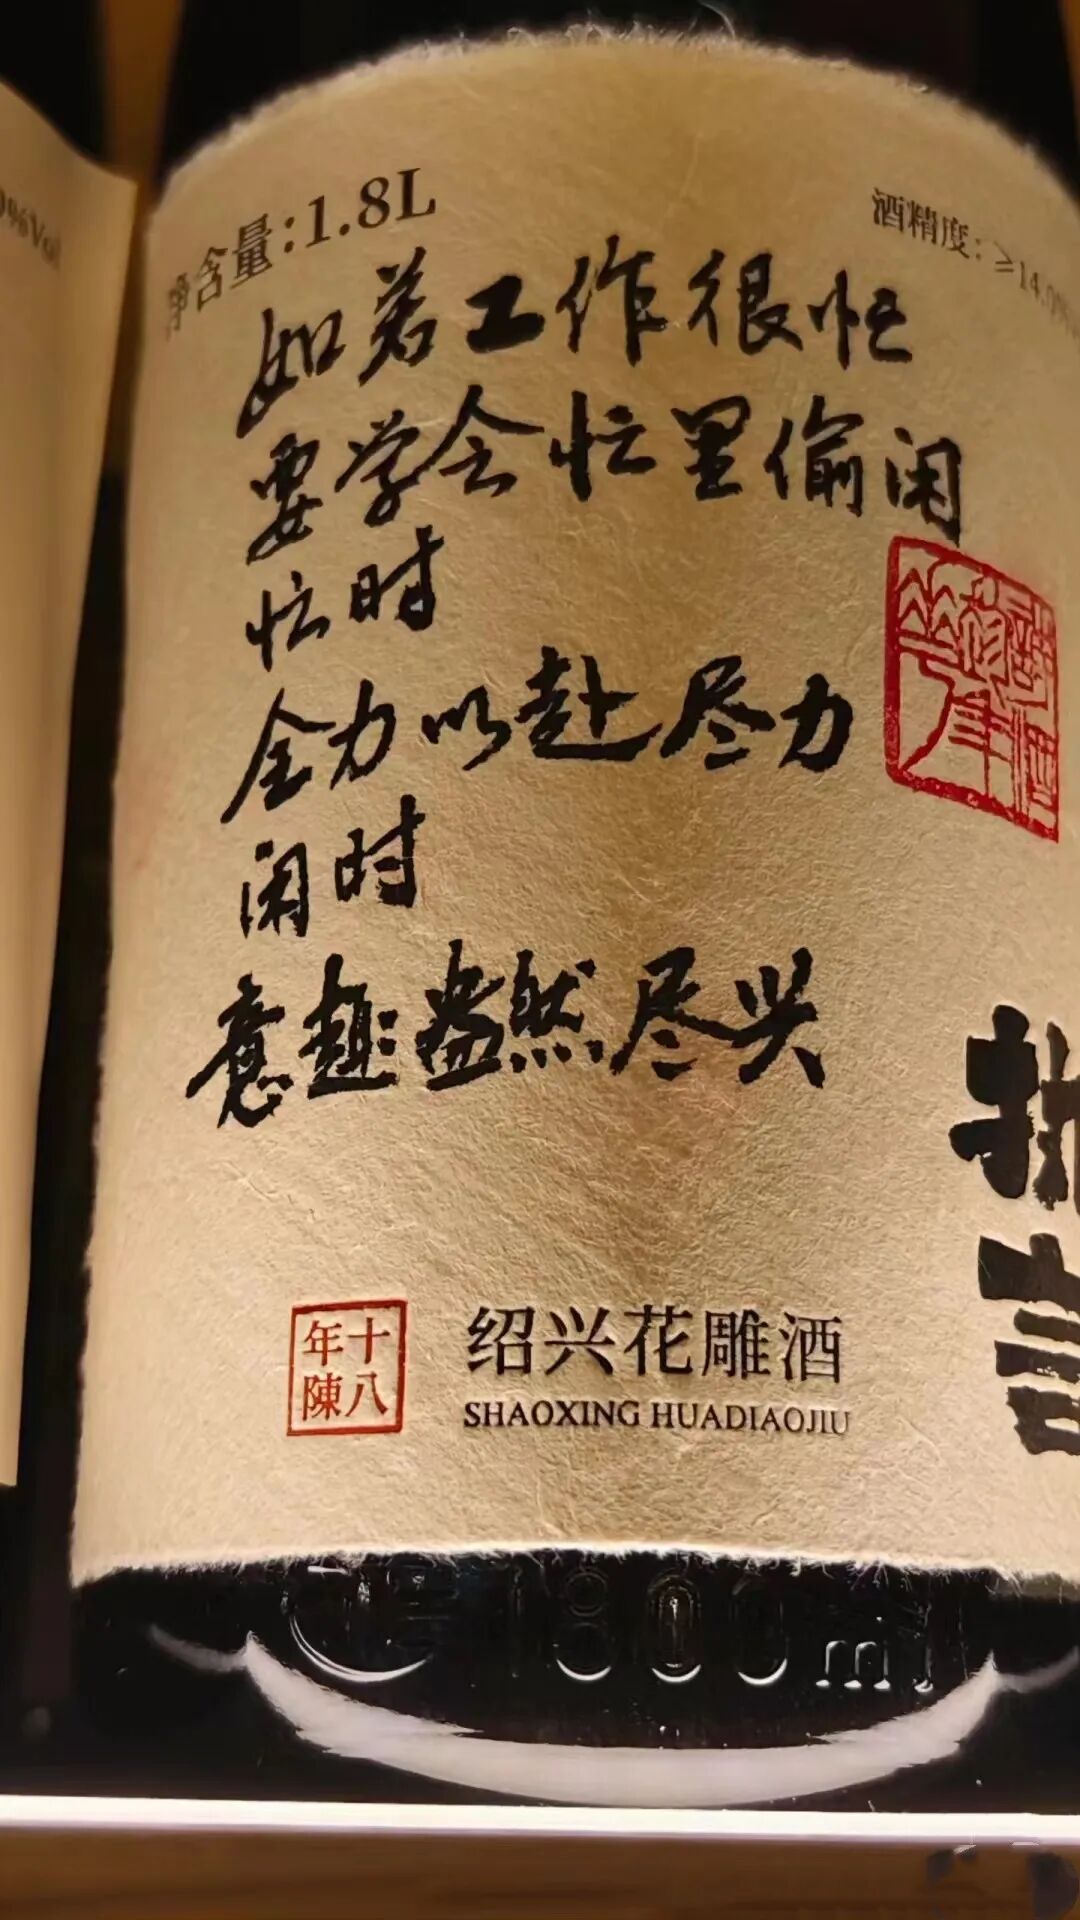 净含量:1.8L
酒精度:≥14.0%
如若工作很忙
要学会忙里偷闲
忙时
全力以赴尽力
闲时
意趣盎然尽兴
十八
年陳
绍兴花雕酒
SHAOXING HUADIAOJIU
1800ml